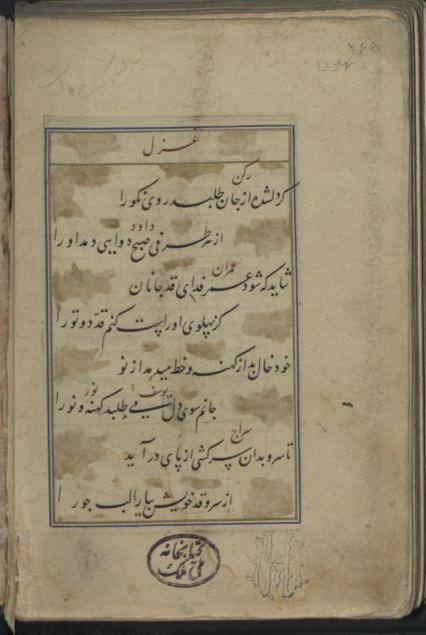 ۲۶۵
غزل
رکن
کر لشده از جان طلبد روی نکو را
داود
از هر طرفی صبح دوایی دمد او را
عمران
شاید که شود عمر فدای قد جانان
کز پهلوی او راست کنم قد دوتو را
خود خال بد از کهنه و خط میدمد از نو
یوسف نور
جانم سوی دل می طلبد کهنه و نو را
سراج
تا سرو بدان سرکشی از پای درآید
از سرو قد خویش بیارا لب جو را
کتابخانه
ملی ملک